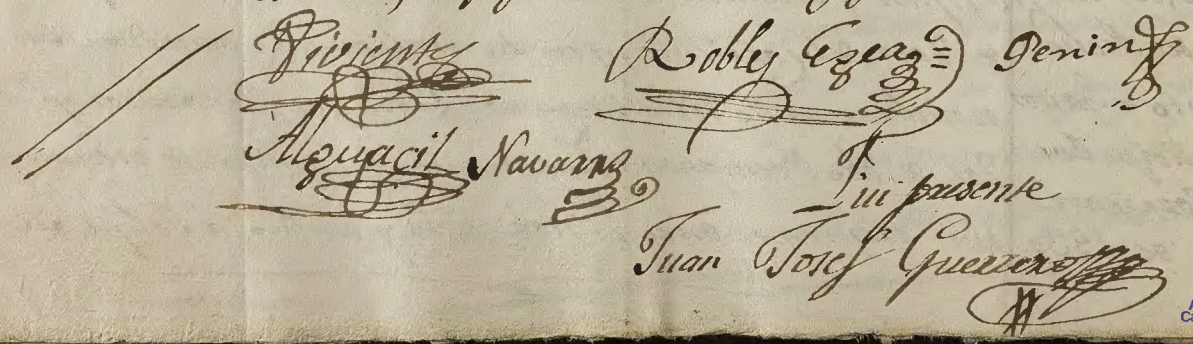 Vivientes Robles Egea Penin
Alguacil Navarro
Fui presente
Juan Josef Guerrero